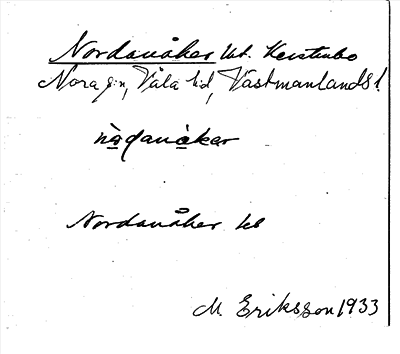 Nordanåker ut. Kerstinbo
Nora sn, Våla hd, Västmanlands l.
nọḍanạ̊kar
Nordanåker kb
M Eriksson 1933